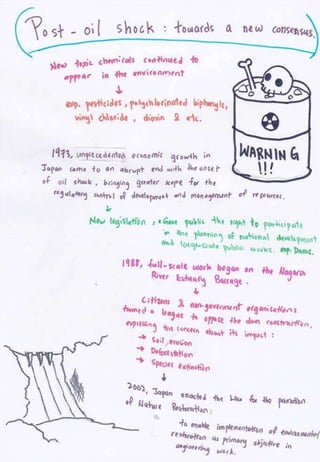 Post - oil shock : towards a new consensus.
New toxic chemicals continued to
appear in the environment
↓
esp. pesticides, polychlorinated biphenyls,
vinyl chloride, dioxin & etc.
WARNING
!!!
1973, unprecedented economic growth in
Japan came to an abrupt end with the onset
of oil shock, bringing greater scope for the
regulatory control of development and management of resources.
↓
New legislation : • Gave public the right to participate
in the planning of national development
and large-scale public works. esp. Dams.
1988, full-scale work began on the Nagara
River Estuary Barrage.
↓
Citizens & non-government organisations
formed a league to oppose the dam construction,
expressing the concern about its impact :
→ Soil erosion
→ Deforestation
→ Species extinction
↓
2002, Japan enacted the Law for the promotion
of Nature Restoration :
to enable implementation of environmental
restoration as primary objective in
engineering work.